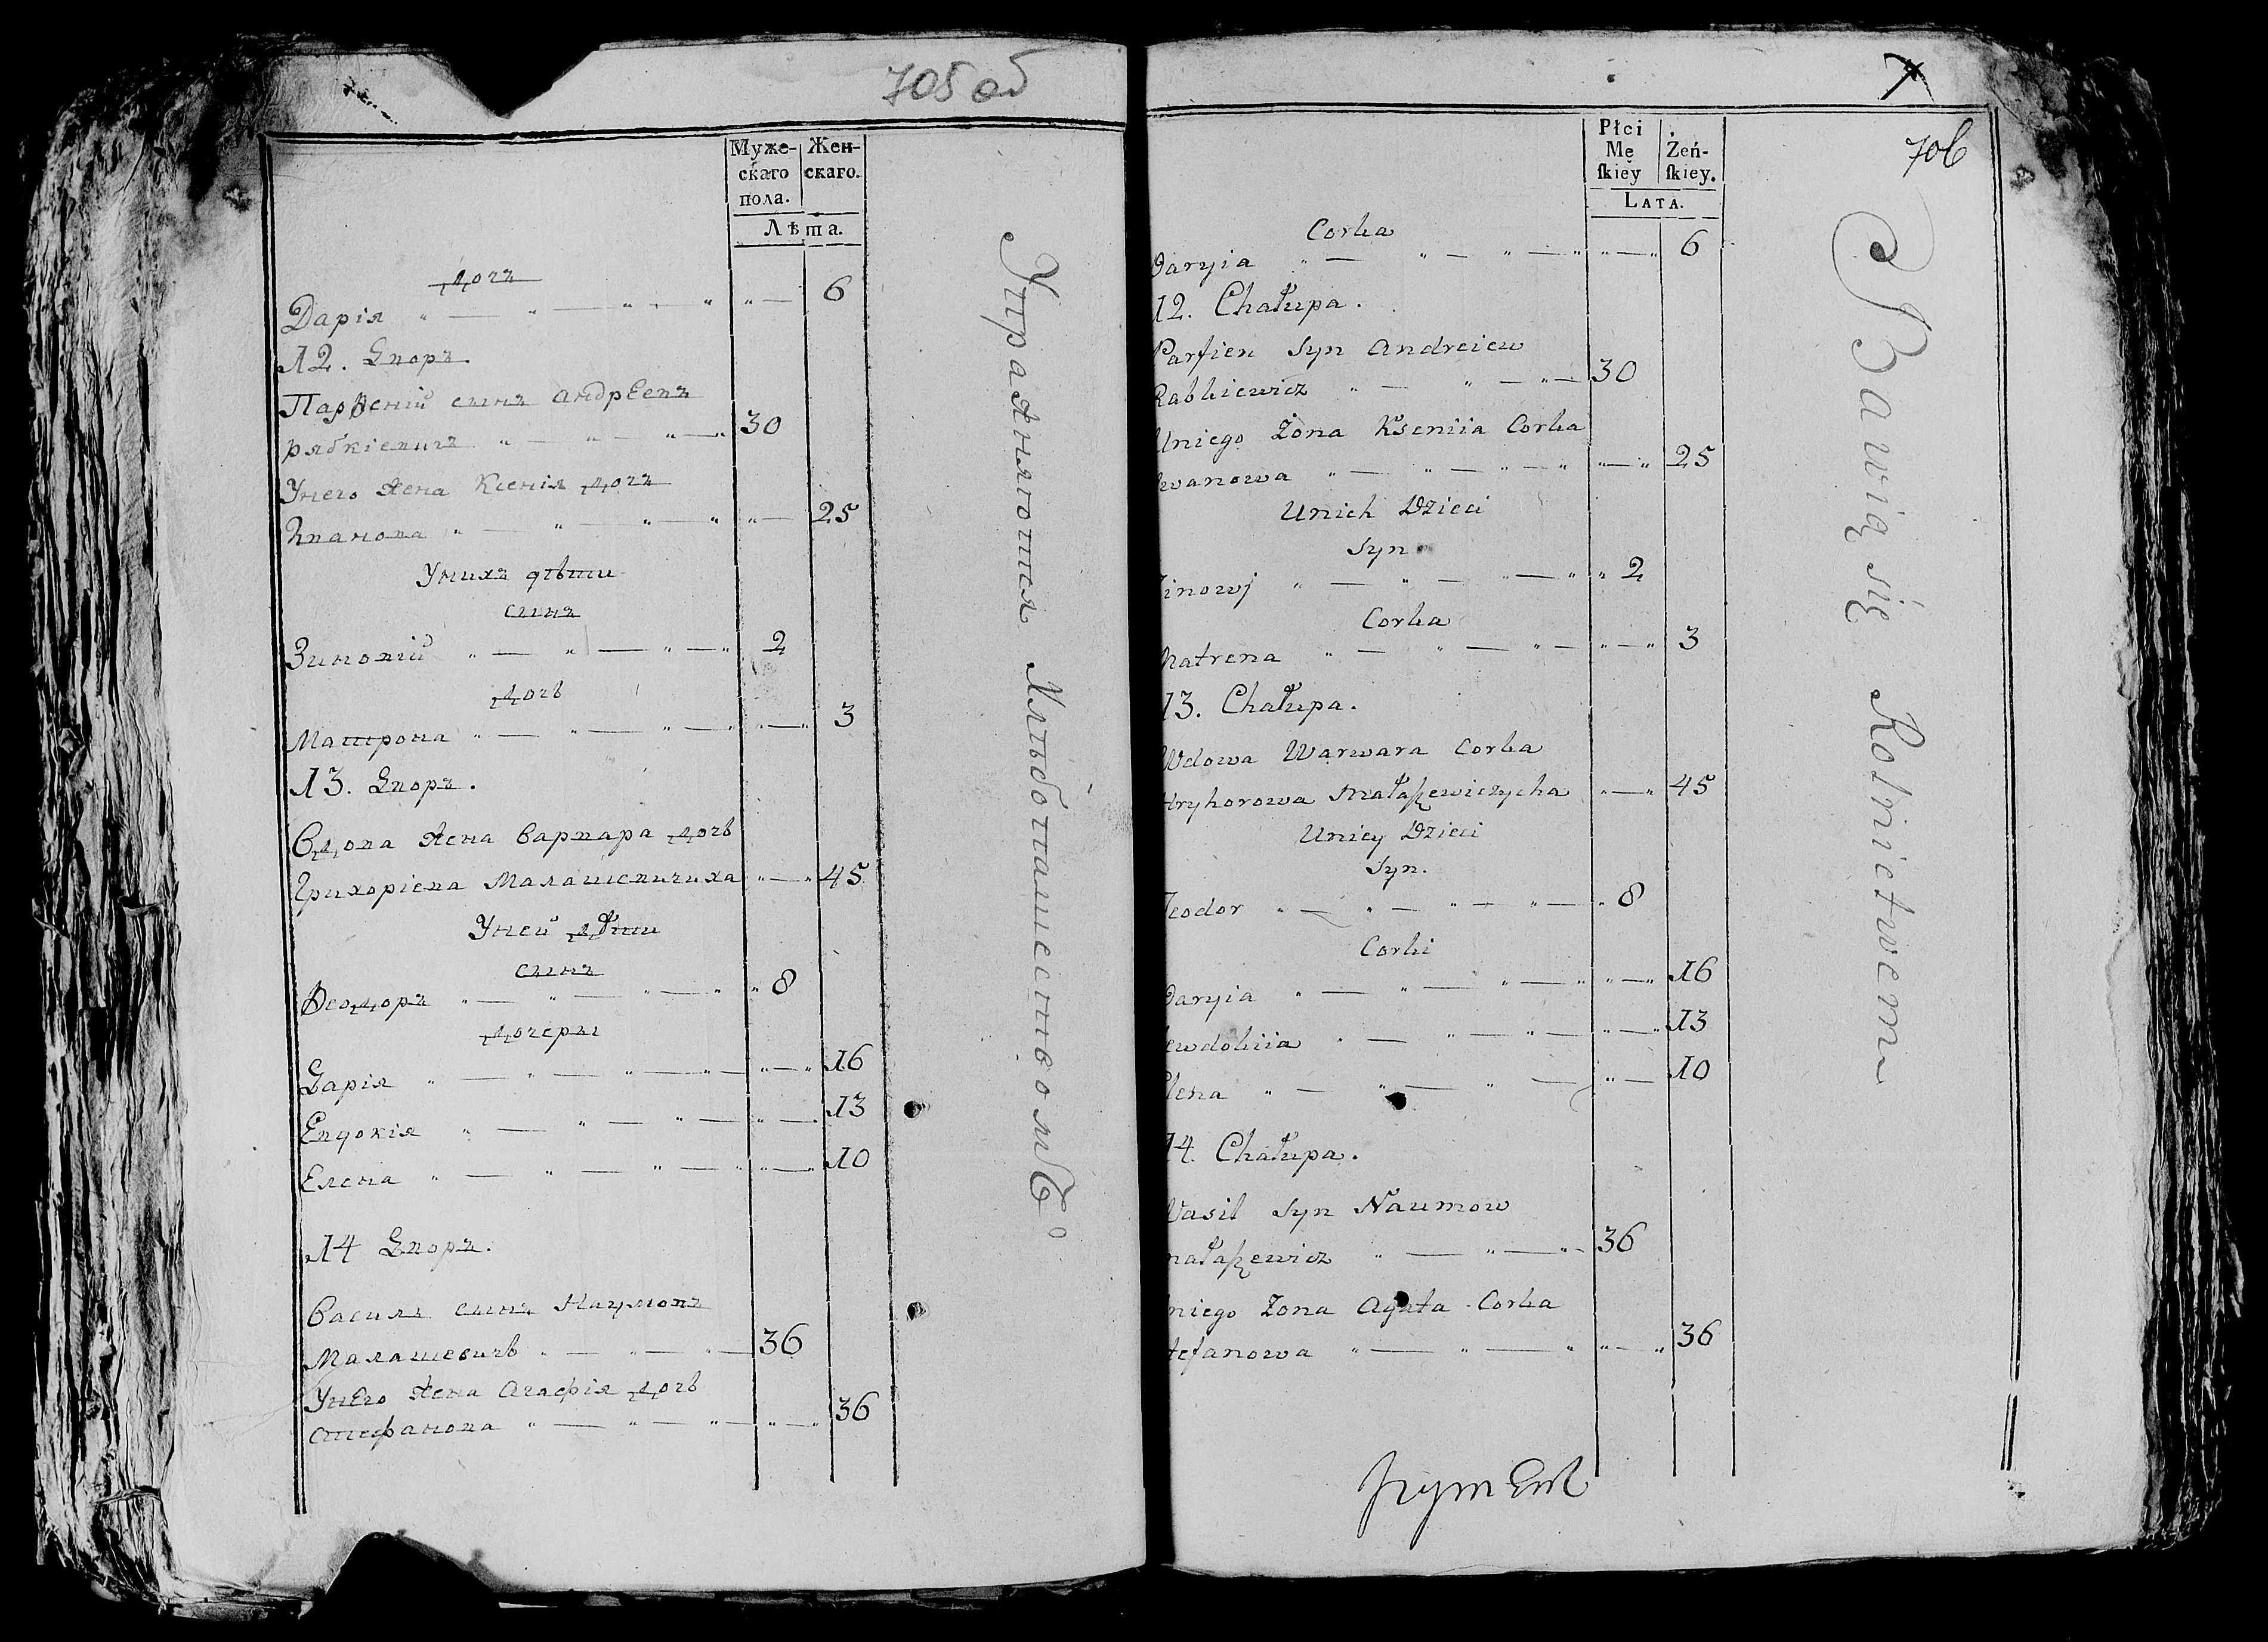 705 об
Муже-
скаго
пола.
Жен-
скаго.
Лѣта.
дочъ
Дарія 6
12. Дворъ.
Парѳеній сынъ андрЕевъ
рябкіевичъ 30
Унего жена Ксенія дочъ
Иванова 25
Унихъ дѣти
сынъ
Зиновій 2
дочь
Матрона 3
13. Дворъ.
Вдова жена варвара дочь
Грихоріева Малашевичиха 45
Уней дѣти
сынъ
Ѳеодоръ 8
дочеры
Дарія 16
Евдокія 13
Елена 10
14 Дворъ.
василь сынъ Наумовъ
Малашевичь 36
УнЕго жена агафія дочь
стефанова 36
Упражняются Хлѣбопашествомъ
7
706
Płci
Mę
ſkiey
Żeń-
ſkiey.
LATA.
Corka
Daryia 6
12. Chałupa.
Parfien Syn Andreiew
Rabkiewicz 30
Uniego Żona Kseniia Corka
Iwanowa 25
Unich Dzieci
Syn
Zinowj 2
Corka
Matrena 3
13. Chałupa.
Wdowa Warwara Corka
Hryhorowa Małaſzewiczycha 45
Uniey Dzieci
Syn.
Teodor 8
Corki
Daryia 16
Jewdokiia 13
Elena 10
14 Chałupa.
Wasil Syn Naumow
Małaſzewicz 36
Uniego Żona Agata Corka
Stefanowa 36
Bawią się Rolnictwem